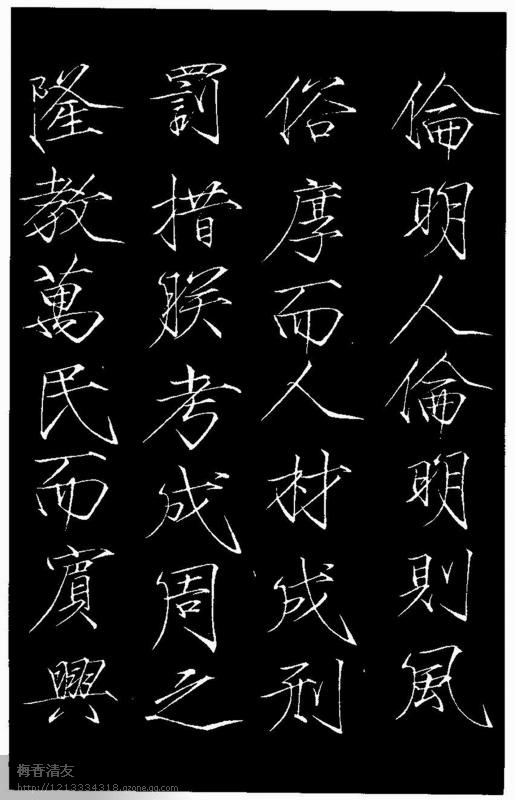 倫明人倫明則風
俗厚而人材成刑
罰措朕考成周之
隆教萬民而賓興
梅香清友
http://1213334318.qzone.qq.com